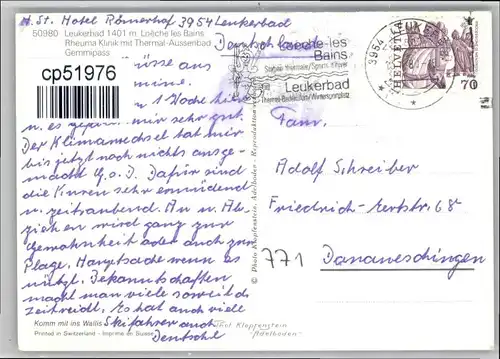 M. St. Hotel Römerhof 3954 Leukerbad
50980 Leukerbad 1401 m Loèche les Bains
Rheuma Klinik mit Thermal-Aussenbad
Gemmipass
Deutschland
Loèche-les
Bains
Station thermale/Sports d'hiver
Leukerbad
Thermal-Badekurort/Wintersportplatz
3954 LEUKERBAD
HELVETIA
70
cp51976
Grüsse aus
1 Woche hier
u. es gefällt mir sehr gut.
Der Klimawechsel hat mir
bis jetzt noch nichts ausge-
macht G.s.D. Dafür sind
die Kuren sehr ermüdend
u. zeitraubend. An u. Aus-
ziehen wird ganz zur
Gewohnheit oder auch zur
Plage. Hauptsache wenn es
nützt. Bekanntschaften
macht man viele soweit die
Zeit reicht. Es hat auch viele
Skifahrer auch
Deutsche
Fam.
Adolf Schreiber
Friedrich-Ebertstr. 68
771
Donaueschingen
© Photo Klopfenstein, Adelboden
Komm mit ins Wallis
Printed in Switzerland - Imprimé en Suisse
Klopfenstein
Adelboden